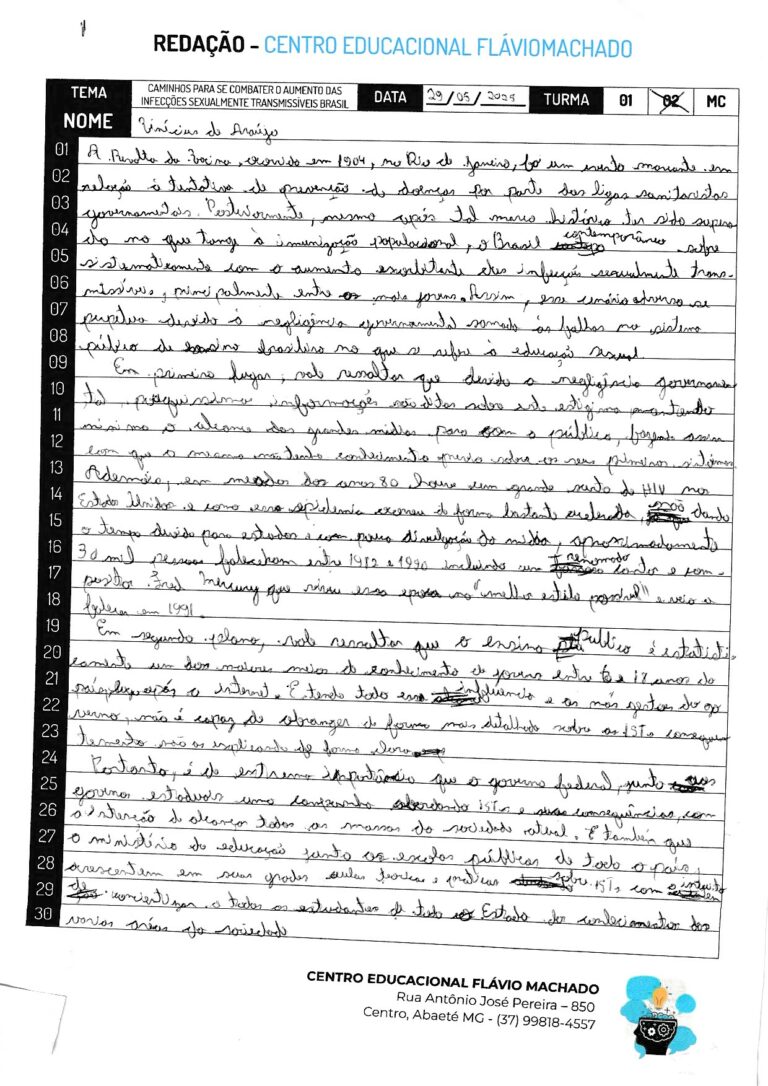 REDAÇÃO - CENTRO EDUCACIONAL FLÁVIOMACHADO
TEMA CAMINHOS PARA SE COMBATER O AUMENTO DAS INFECÇÕES SEXUALMENTE TRANSMISSÍVEIS BRASIL DATA 29/05/2025 TURMA 01 02 MC
NOME Vinícius de Araújo
01 A Revolta da Vacina, ocorrida em 1904, no Rio de Janeiro, foi um evento marcante em
02 relação à tentativa de prevenção de doenças por parte das ligas sanitaristas
03 governamentais. Posteriormente, mesmo após tal marco histórico ter sido supera
04 do no que tange à imunização populacional, o Brasil contemporâneo sofre
05 sistematicamente com o aumento exorbitante das infecção sexualmente trans-
06 missíveis, principalmente entre os mais jovens. Assim, esse cenário adverso se
07 perpetua devido à negligência governamental somado às falhas no sistema
08 público de ensino brasileiro no que se refere à educação sexual.
09 Em primeiro lugar, vale ressaltar que devido a negligência governamen
10 tal, pouquíssima informações são ditas sobre este estigma mantendo
11 mínimo o alcance das grandes mídias para com o público, fazendo assim
12 com que o mesmo não tenha conhecimento prévio sobre os seus primeiros sintomas
13 Ademais, em meados dos anos 80 houve um grande surto de HIV nos
14 Estados Unidos e como essa epidemia ocorreu de forma bastante acelerada, não dando
15 o tempo devido para estudos e com pouca divulgação da mídia, aproximadamente
16 30 mil pessoas faleceram entre 1982 e 1990 incluindo um renomado cantor e com-
17 positor Fred Mercury que viveu essa época no "melhor estilo possível" e veio a
18 falecer em 1991.
19 Em segundo plano, vale ressaltar que o ensino público é estatisti-
20 camente um dos maiores meios de conhecimento de jovens entre 6 e 18 anos do
21 país, após a internet. E tendo toda essa influência e as más gestões do go
22 verno, não é capaz de abranger de forma mais detalhada sobre as ISTs consequen
23 temente não as explicando de forma clara
24 Portanto, é de extrema importância que o governo federal, junto aos
25 governos estaduais uma campanha abordando ISTs e suas consequências, com
26 a intenção de alcançar todas as massas da sociedade atual. E também que
27 o ministério da educação junto as escolas públicas de todo o país,
28 acrescentem em suas grades aulas teóricas e práticas sobre ISTs com o intuito
29 de concientizar a todos os estudantes de todo o Estado do conhecimento das
30 varias áreas da sociedade
CENTRO EDUCACIONAL FLÁVIO MACHADO
Rua Antônio José Pereira – 850
Centro, Abaeté MG - (37) 99818-4557